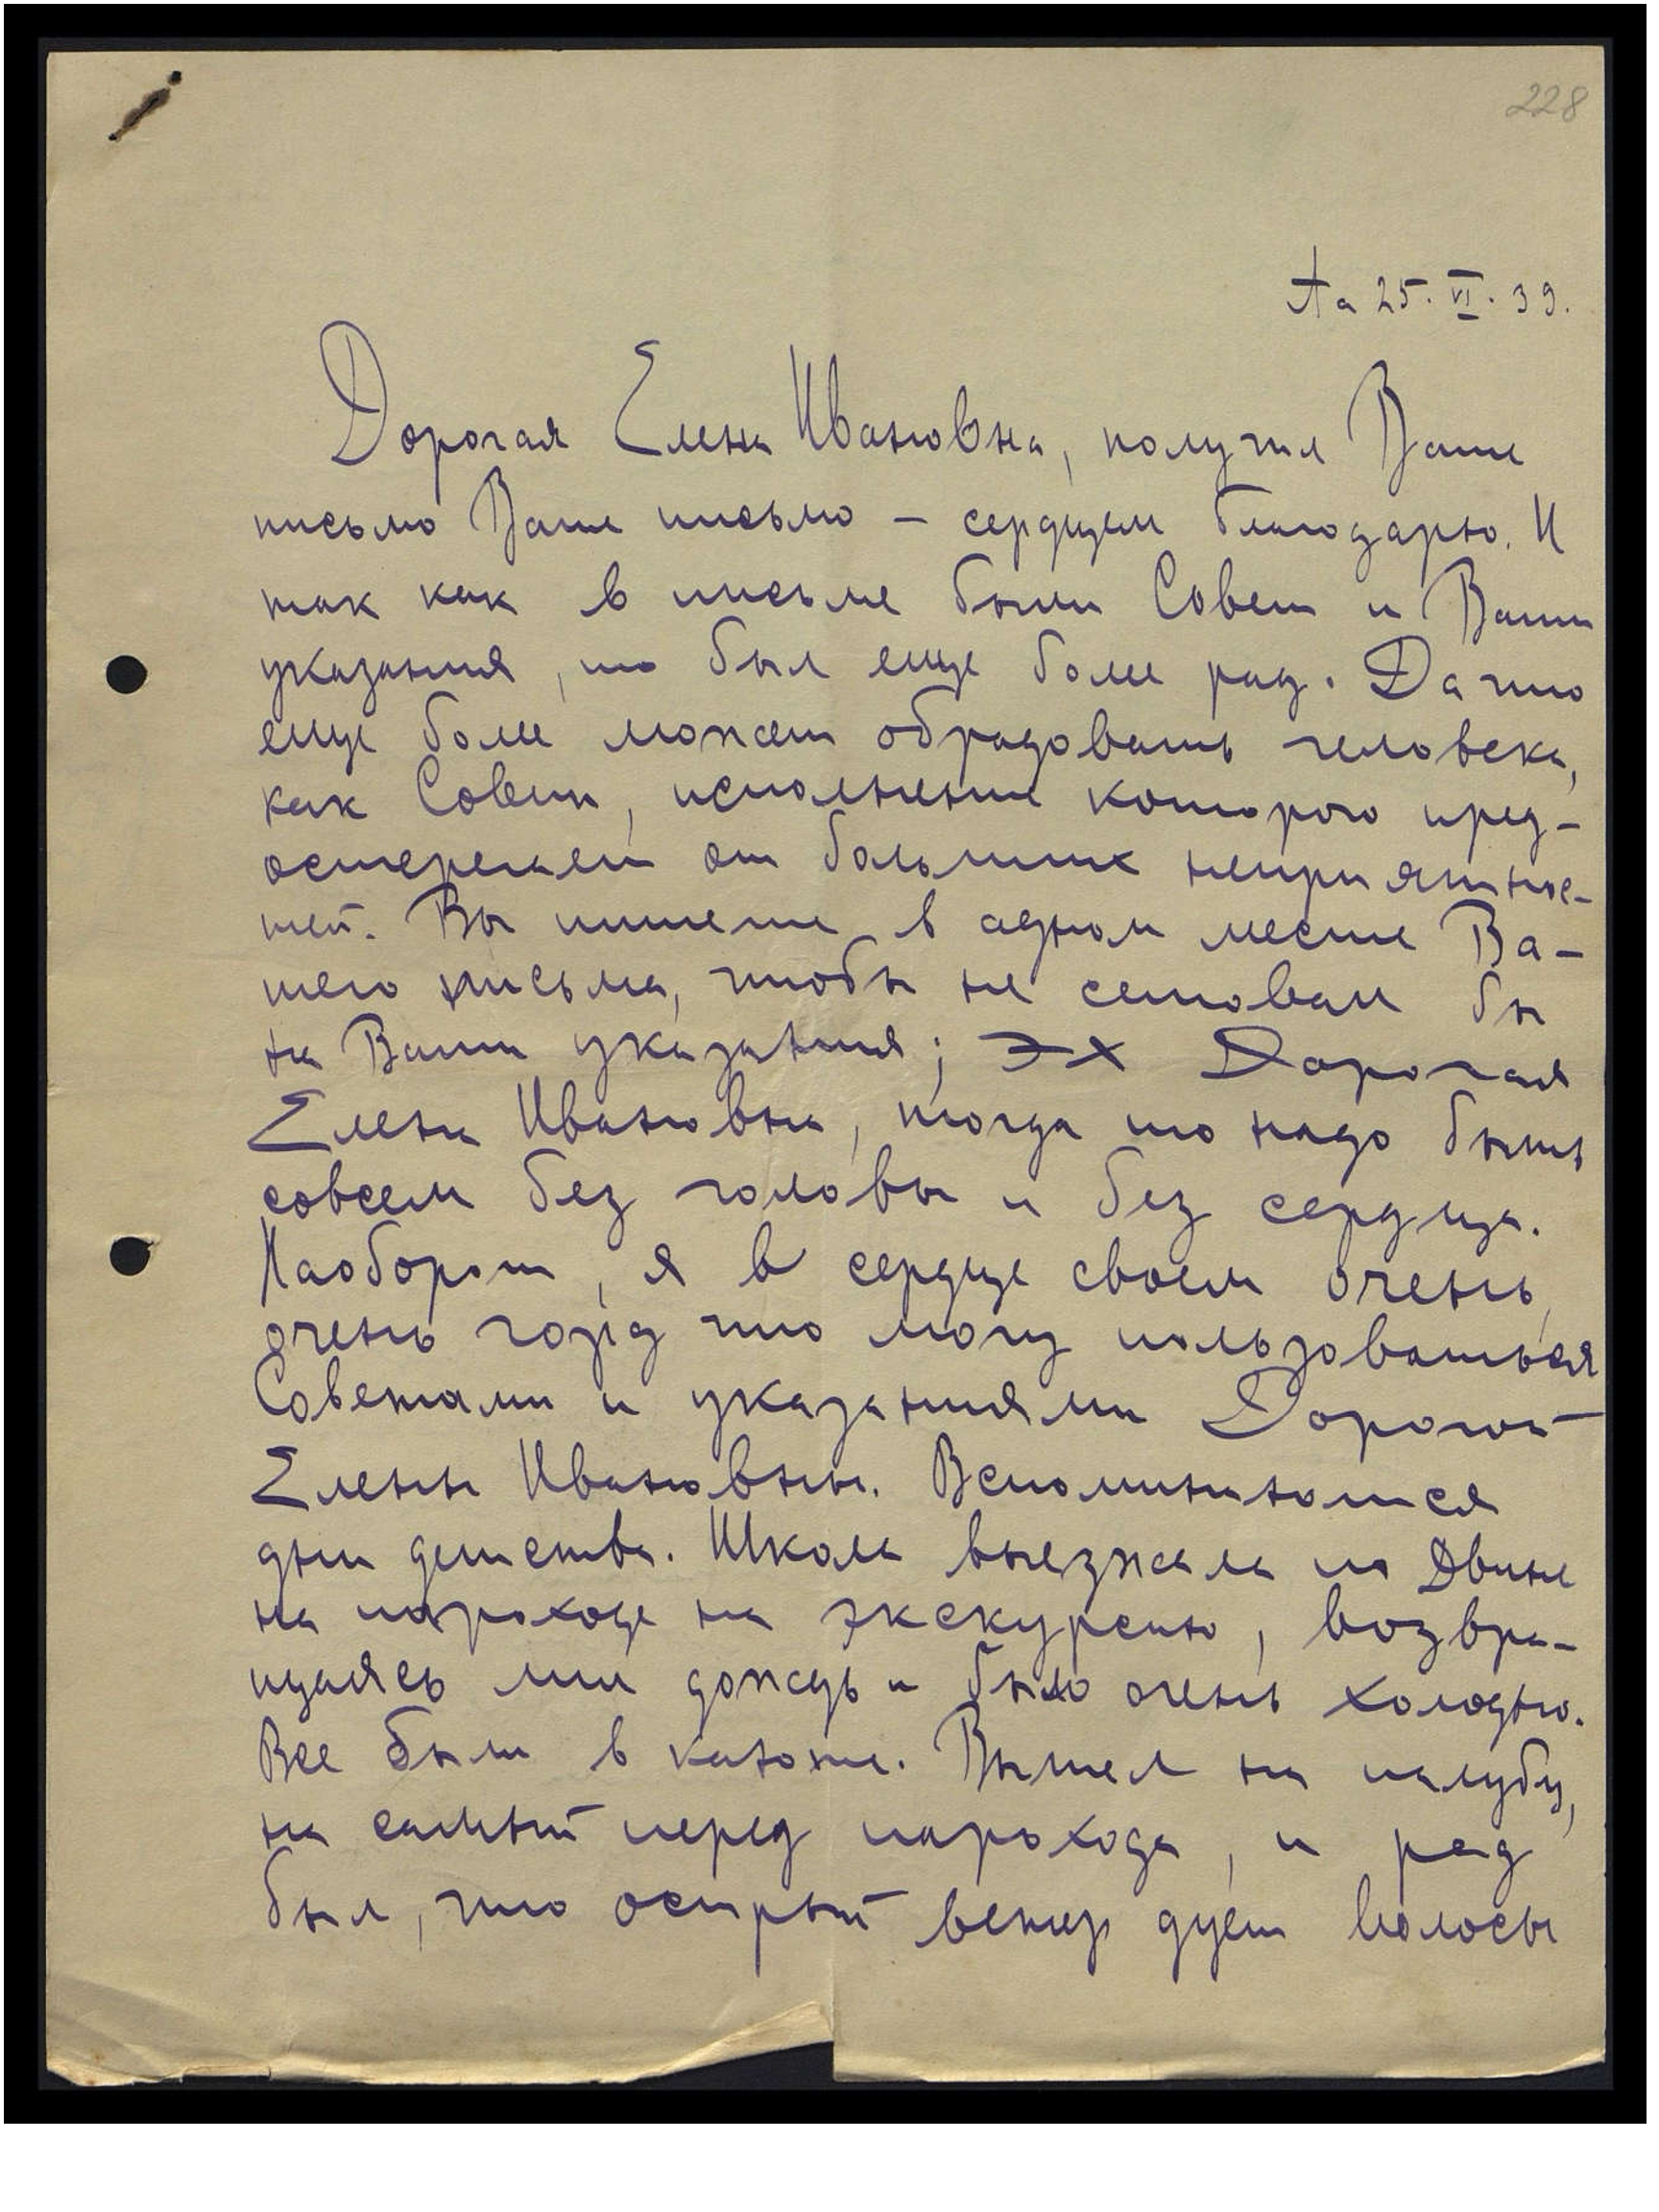 228
Aa 25.VI.39.
Дорогая Елена Ивановна, получил Ваше
письмо Ваше письмо – сердцем благодарю. И
так как в письме были Совет и Ваши
указания, то был еще более рад. Да что
еще более может обрадовать человека,
как Совет, исполнение которого пред-
остерегает от больших неприятнос-
тей. Вы пишете в одном месте Ва-
шего письма, чтобы не сетовал бы
на Ваши указания; Эх Дорогая
Елена Ивановна, тогда то надо быть
совсем без головы и без сердца.
Наоборот, я в сердце своем очень,
очень горд что могу пользоваться
Советами и указаниями Дорогой
Елены Ивановны. Вспоминаются
дни детства. Школа выезжала по Двине
на пароходе на экскурсию, возвра-
щаясь лил дождь и было очень холодно.
Все были в каюте. Вышел на палубу,
на самый перед парохода, и рад
был, что острый ветер дует волосы